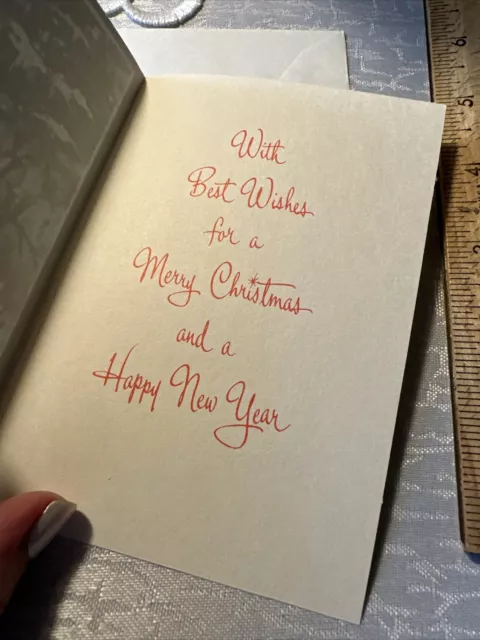 With
Best Wishes
for a
Merry Christmas
and a
Happy New Year
6
5
4